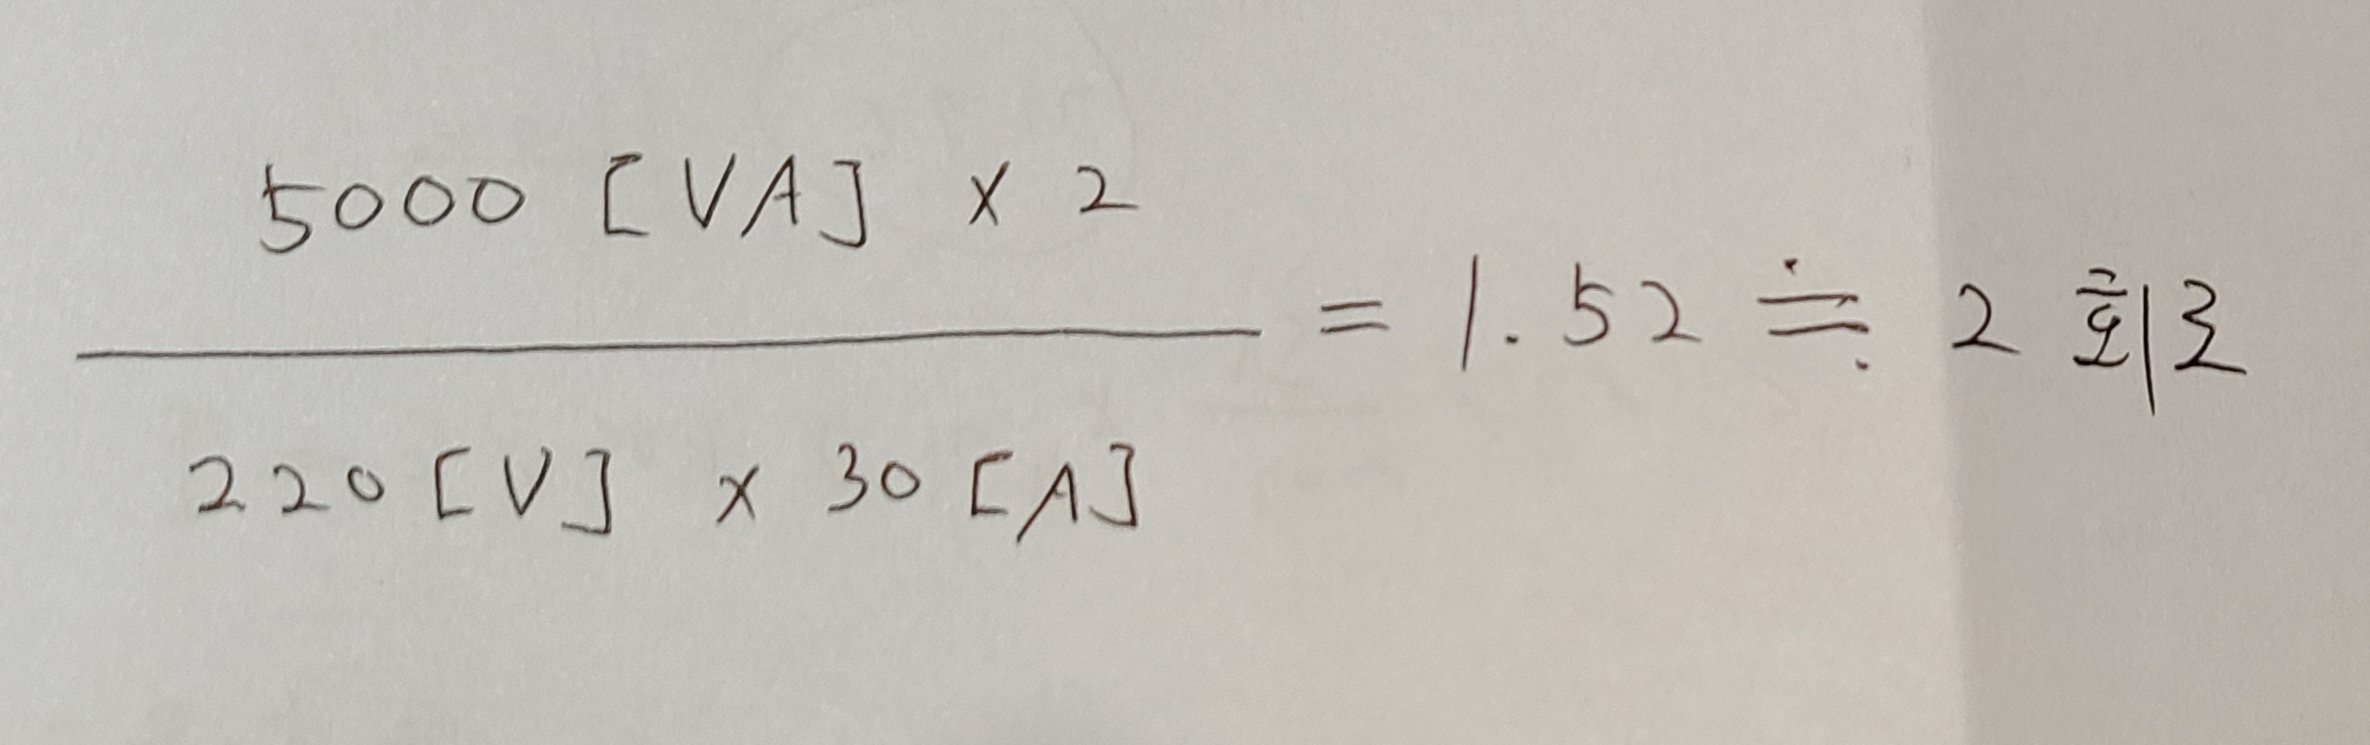 5000 [VA] × 2
220 [V] × 30 [A]
= 1.52 ≒ 2 회로